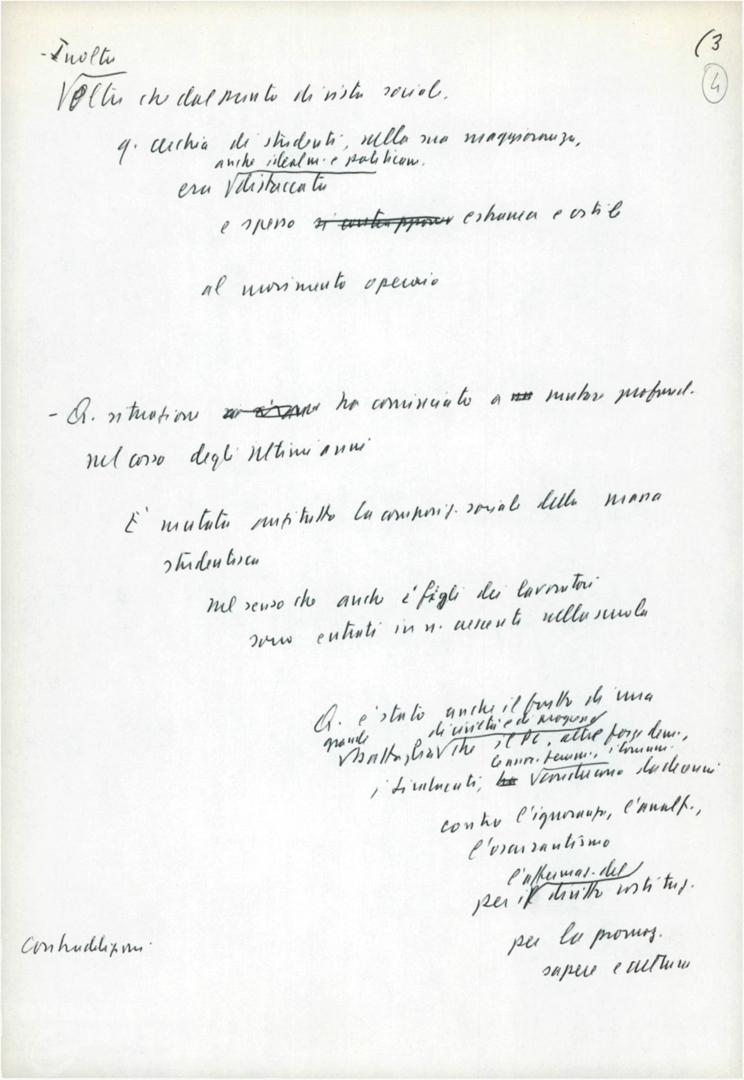 (3
4
- Inoltre
Oltre che dal punto di vista sociale.
q. cerchia di studenti, nella sua maggioranza,
anche idealm. e politicam.
era distaccata
e spesso si contrapponeva estranea e ostile
al movimento operaio
- Q. situazione ha cominciato a mutare profond.
nel corso degli ultimi anni
E' mutata anzitutto la composiz. sociale della massa
studentesca
nel senso che anche i figli dei lavoratori
sono entrati in n. crescente nella scuola
Q. è stato anche il frutto di una
grande di civiltà e di progresso
battaglia che il PC, altre forze dem.,
le assoc. femm., i comuni.
i sindacati, conducono da decenni
contro l'ignoranza, l'analf.,
l'oscurantismo
l'affermaz. del
per il diritto costituz.
per la promoz.
sapere e cultura
Contraddizioni.